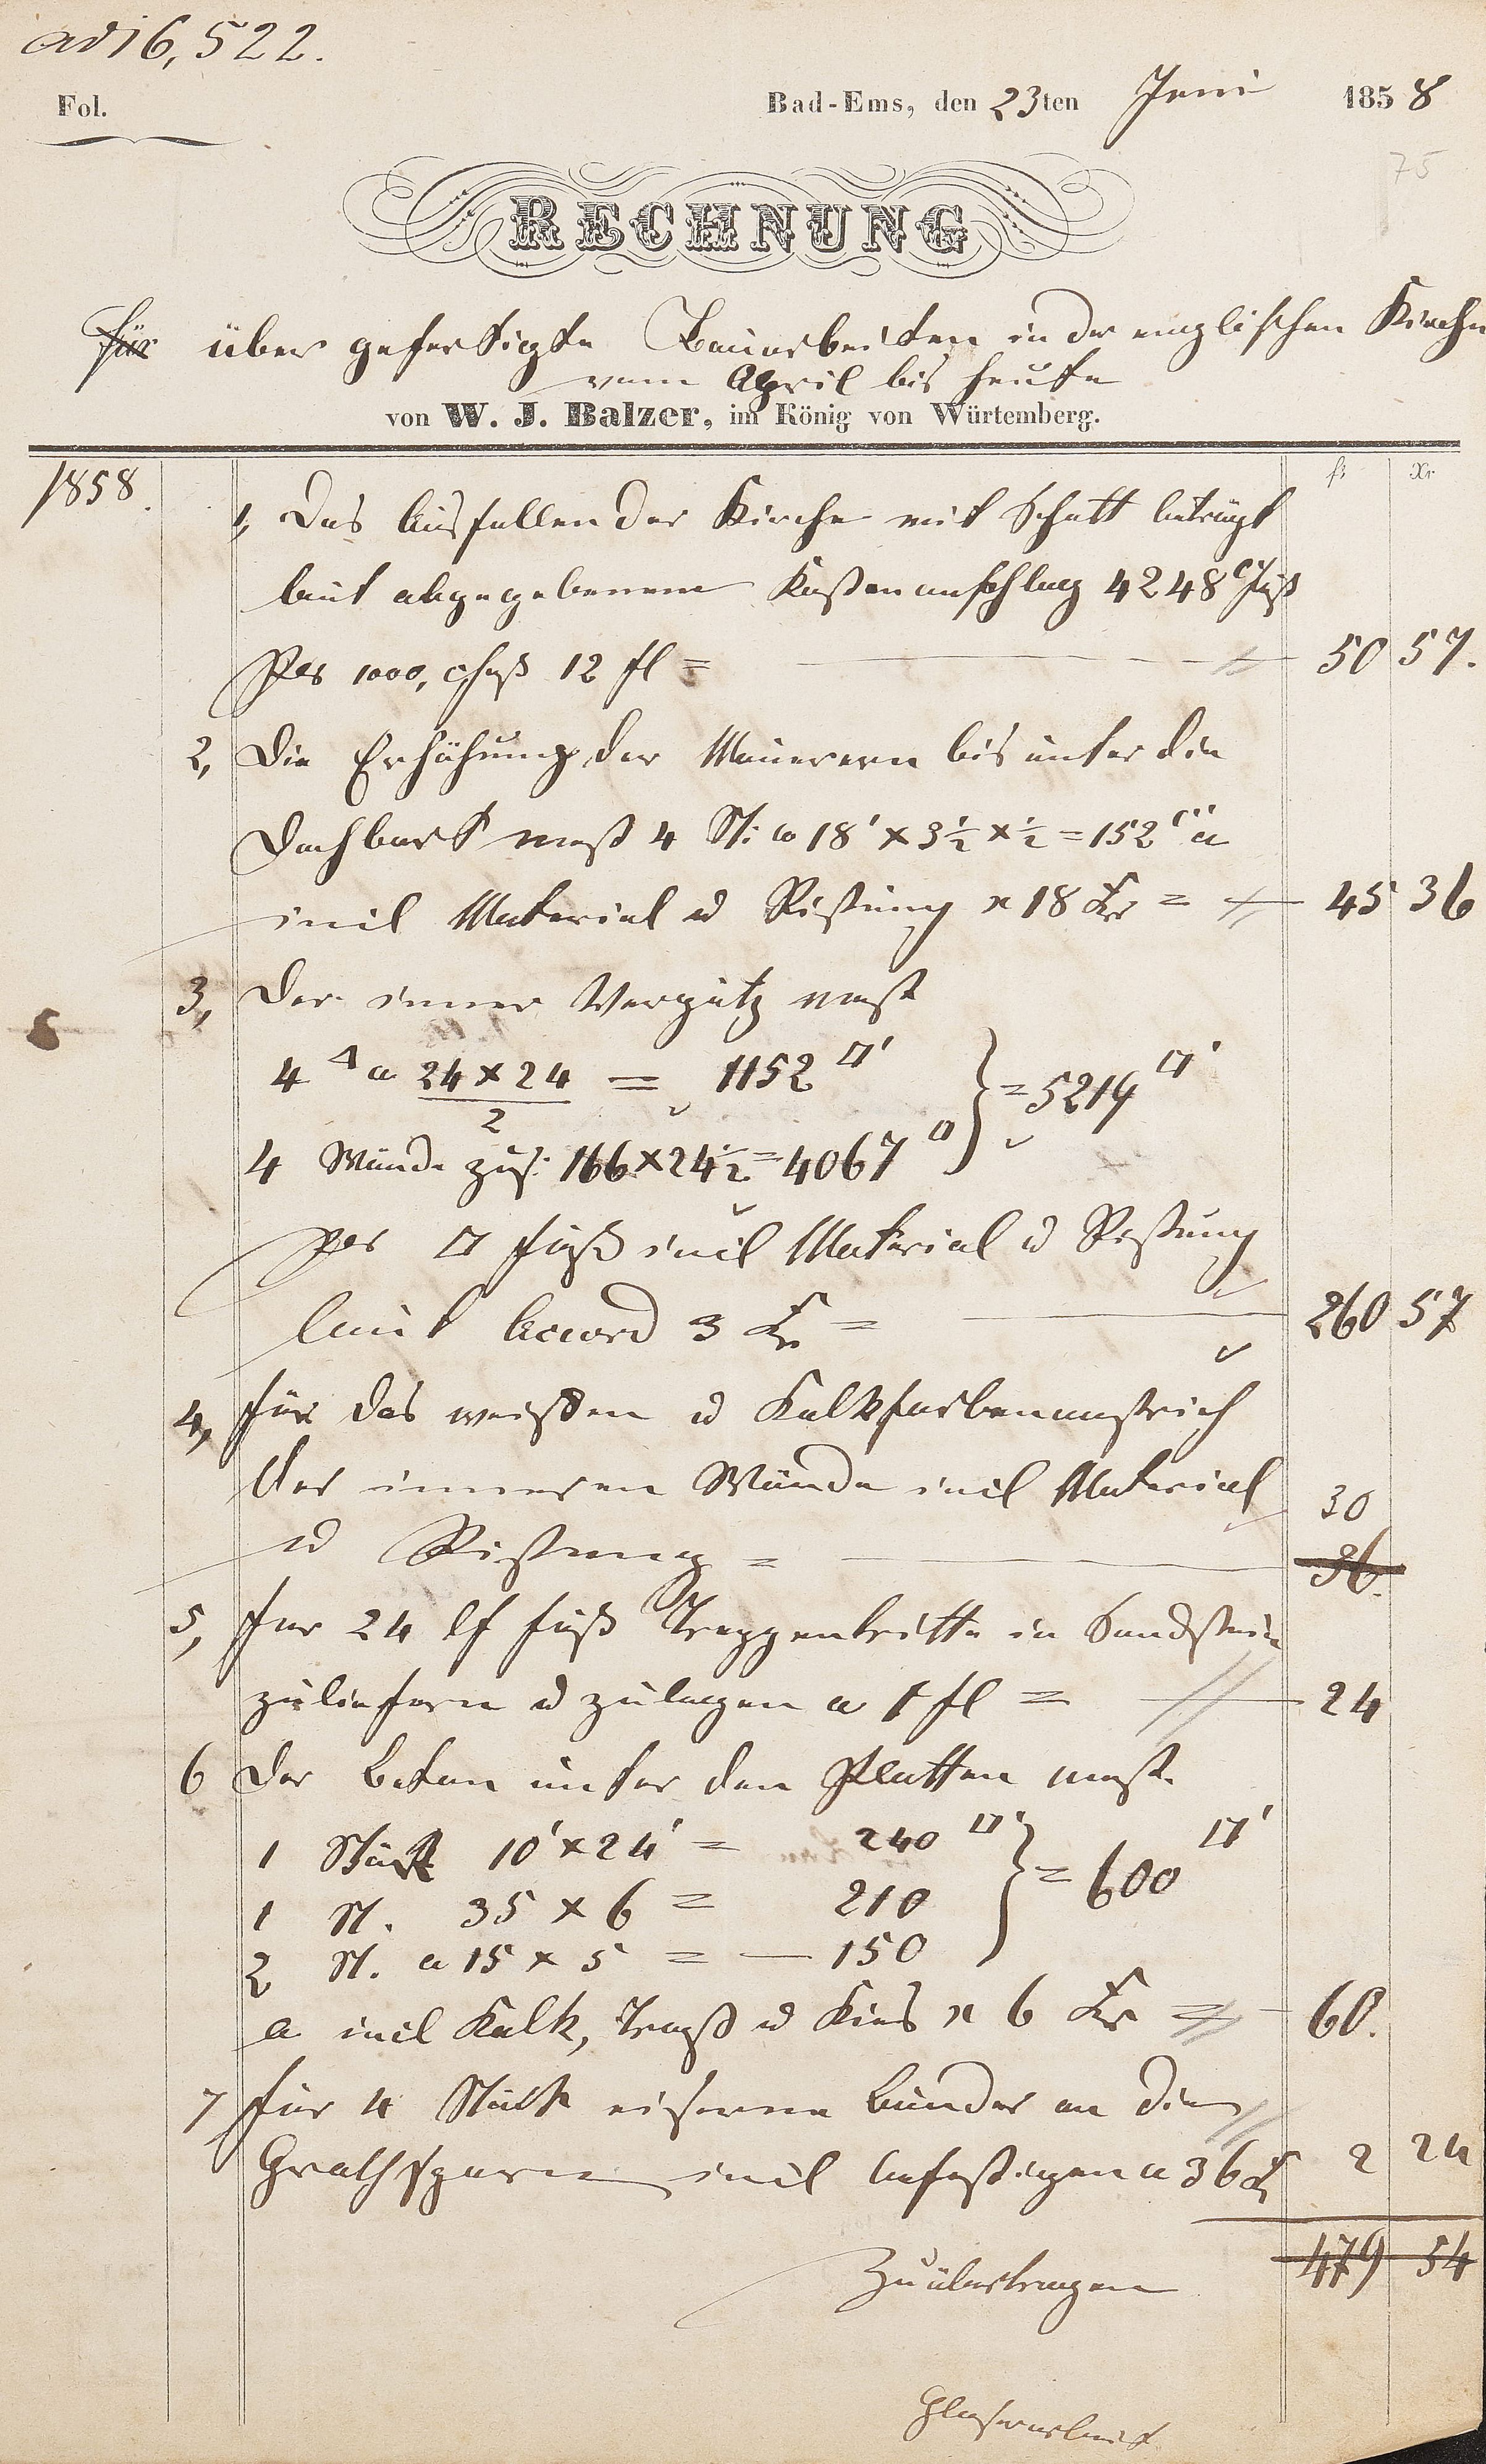 ad 16,522.
Fol.
Bad-Ems, den 23ten Juni 1858
75
RECHNUNG
für über gefertigte Bauarbeiten in der englischen Kirche
vom April bis heute
von W. J. Balzer, im König von Würtemberg.
1858. fl Xr
1, Das Ausfüllen der Kirche mit Schutt beträgt
laut abgegebenem Kostenanschlag 4248 c' Fuß
Per 1000, c' Fuß 12 fl = 50 57.
2, Die Erhöhung der Mauern bis unter die
Dach mest 4 St: a 18' x 3½ x ½ = 152 c'' a
incl Material u Rüstung a 18 Xr = 45 36
3, Der innere Verputz mest
4 a 24 x 24 / 2 = 1152 □'
4 Wände zus: 166 x 24½ = 4067 □' } = 5219 □'
Per □ Fuß incl Material u Rüstung
laut Accord 3 Xr = 260 57
4, Für das weißen u Kalkfarbenanstrich
der inneren Wände incl Material 30
u Rüstung = 36.
5, Für 24 lf Fuß Treppentritte in Sandstein
zuliefern u zulegen a 1 fl = 24
6 Der Beton unter den Platten mest
1 Stück 10' x 24' = 240 □'
1 St. 35 x 6 = 210 } = 600 □'
2 St. a 15 x 5 = 150
a incl Kalk, Traß u Kies a 6 Xr = 60.
7 Für 4 Stück eiserne Bänder an die
Grathsparren incl befestigen a 36 Xr 2 24
479 54
Zuübertragen
Glaserarbeit